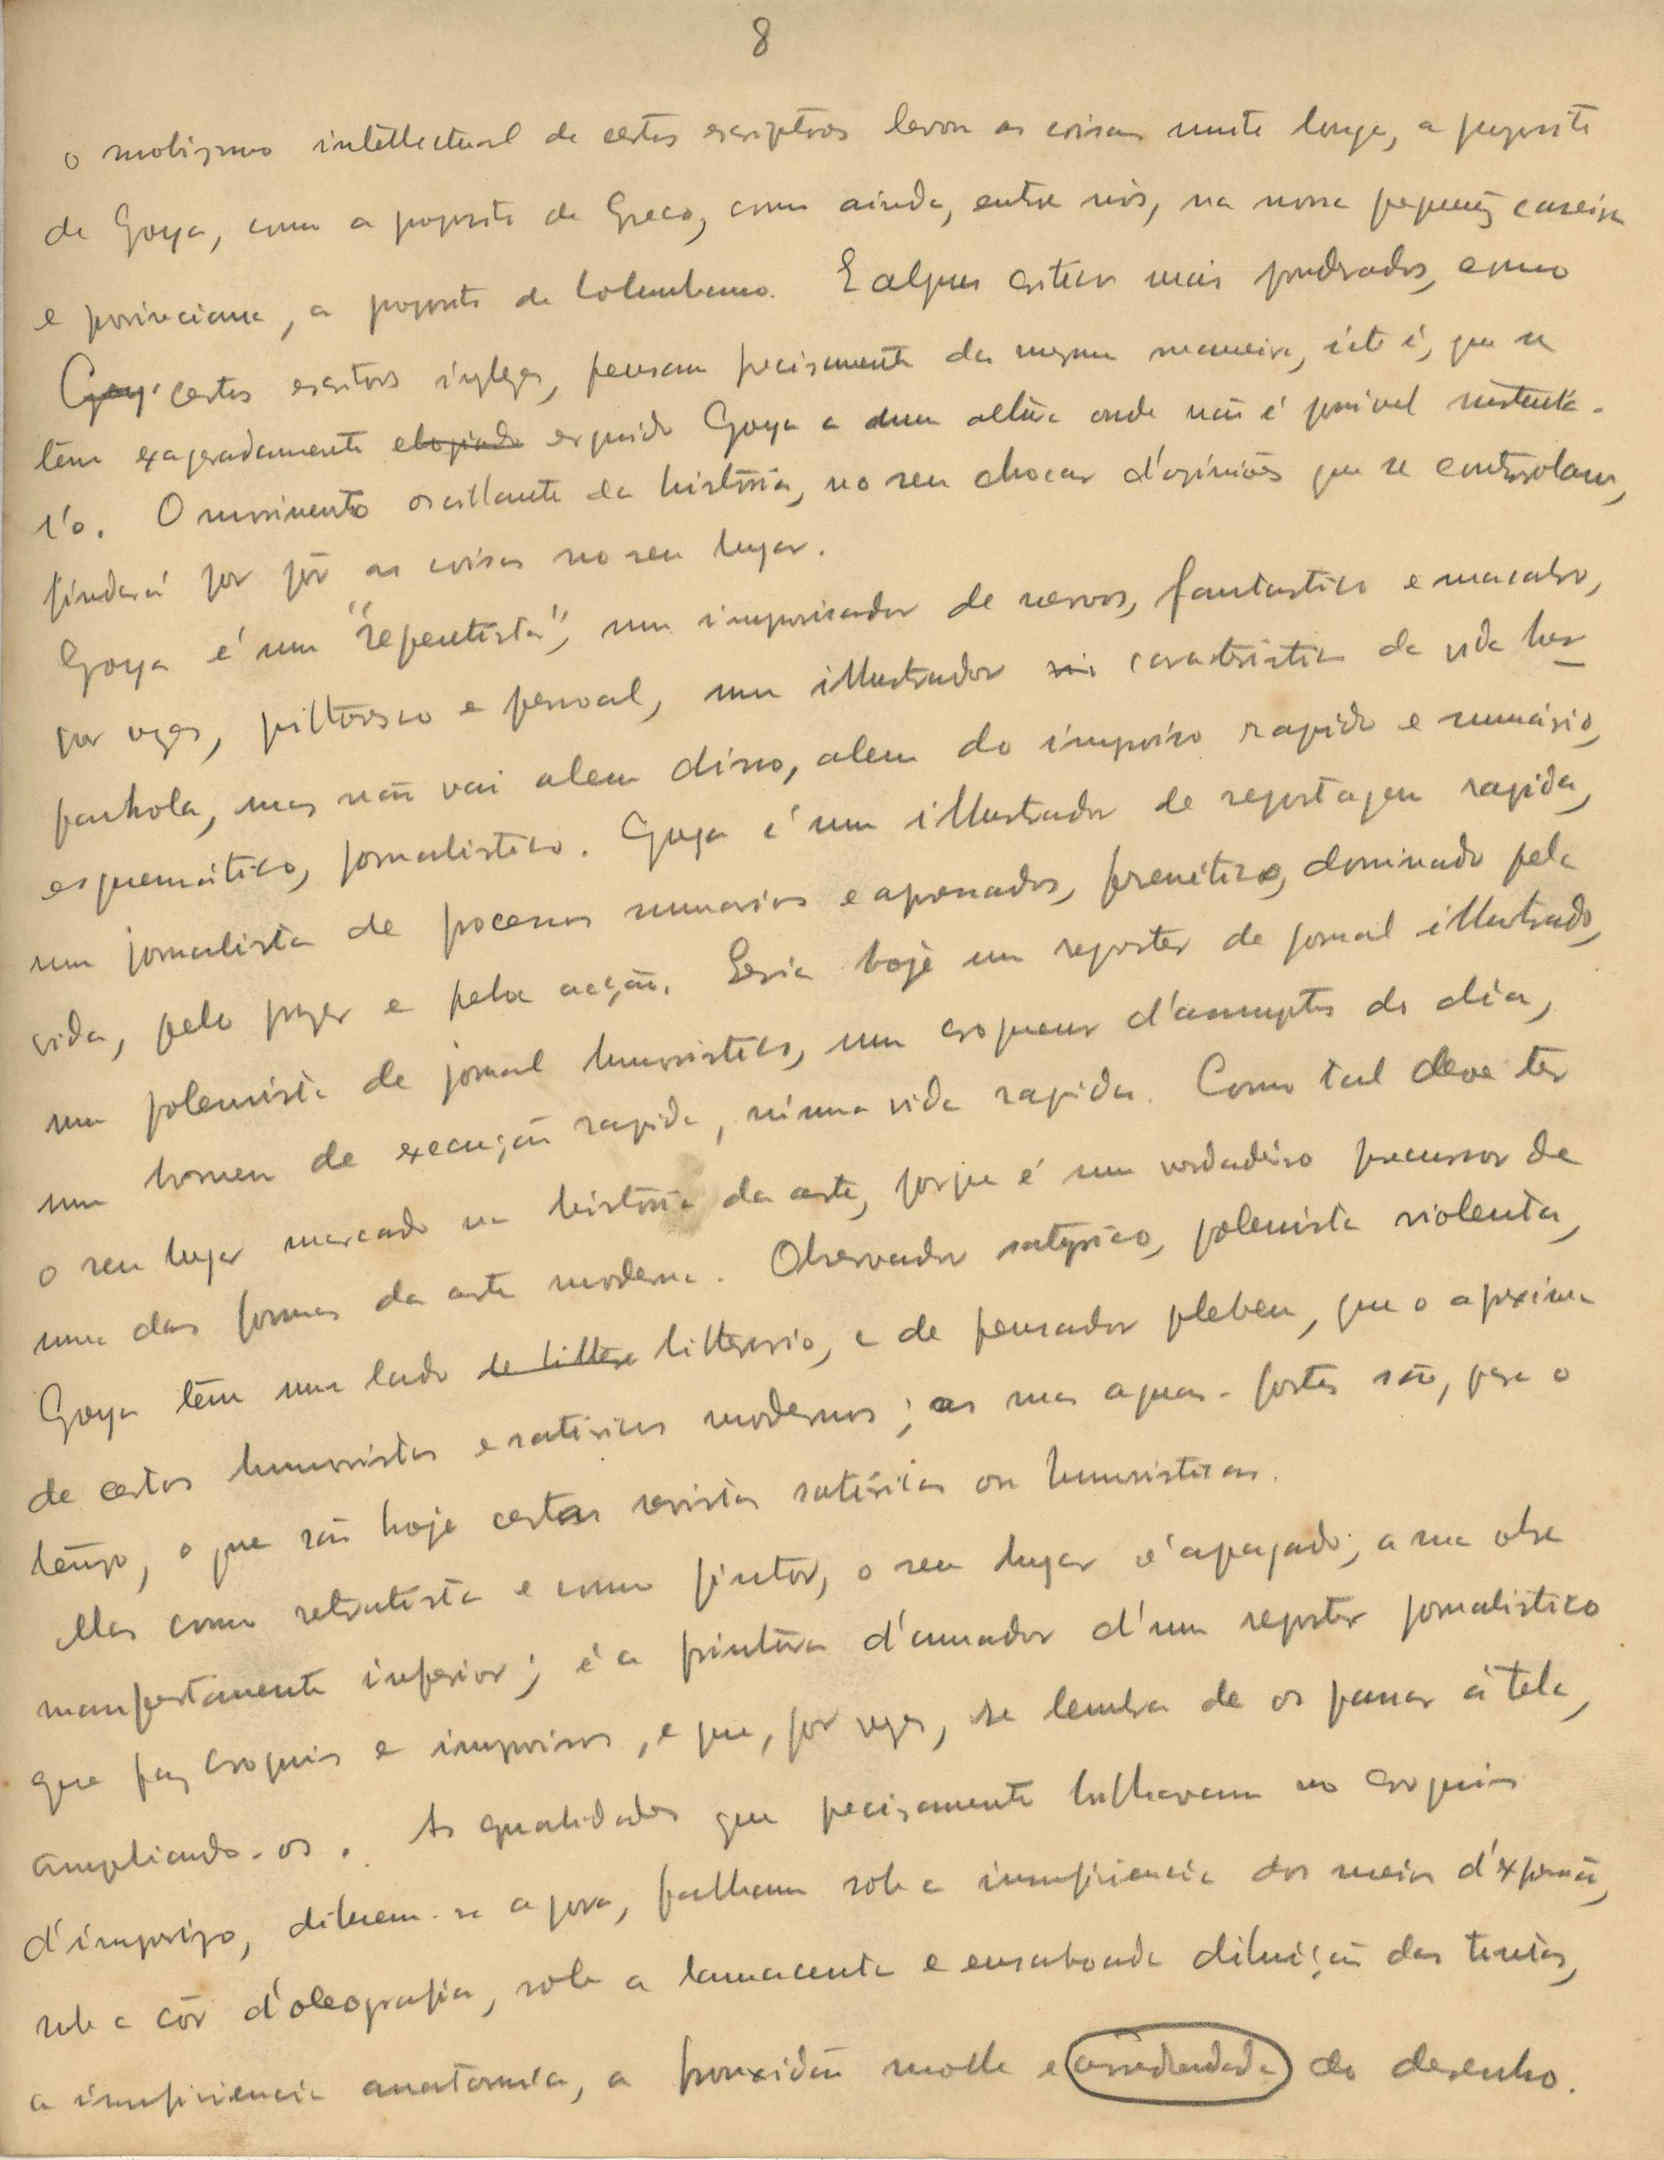 8
o snobismo intellectual de certos escriptores levou as coisas muito longe, a proposito
de Goya, como a proposito de Greco, como ainda, entre nós, na nossa pequenez caseira
e provinciana, a proposito de Columbano. E alguns criticos mais ponderados, como
Goy. certos escritores inglezes, pensam precisamente da mesma maneira, isto é, que se
têm exageradamente elogiado erguido Goya a duma altura onde não é possivel sustentá-
l'o. O movimento oscillante da história, no seu chocar d'opiniões que se controlam,
findará por pôr as coisas no seu lugar.
Goya é um "repentista", um improvisador de nervos, fantastico e macabro,
por vezes, pittoresco e pessoal, um illustrador caracteristico da vida hes-
panhola, mas não vai alem disso, alem do improviso rapido e sumário,
esquemático, jornalistico. Goya é um illustrador de reportagem rapida,
um jornalista de processos sumarios e apressados, frenético, dominado pela
vida, pelo prazer e pela acção. Seria hoje um reporter de jornal illustrado,
um polemista de jornal humoristico, um croqueur d'assumptos do dia,
um homem de execução rapida, n'uma vida rapida. Como tal deve ter
o seu lugar marcado na história da arte, porque é um verdadeiro precursor de
uma das formas da arte moderna. Observador satyrico, polemista violento,
Goya têm um lado de littera litterario, e de pensador plebeu, que o aproxima
de certos humoristas e satiricos modernos; as suas aguas-fortes são, para o
tempo, o que são hoje certas revistas satíricas ou humoristicas.
Mas como retratista e como pintor, o seu lugar é apagado; a sua obra
manifestamente inferior; é a pintura d'amador d'um reporter jornalistico
que faz croquis e improvisos, e que, por vezes, se lembra de os passar á tela,
ampliando-os. As qualidades que precisamente brilhavam no croquis
d'improviso, diluem-se agora, falham sob a insuficiencia dos meios d'expressão,
sob a côr d'oleografia, sob a lamacenta e ensaboada diluição das tintas,
a insuficiencia anatomica, a frouxidão molle e arredondada do desenho.